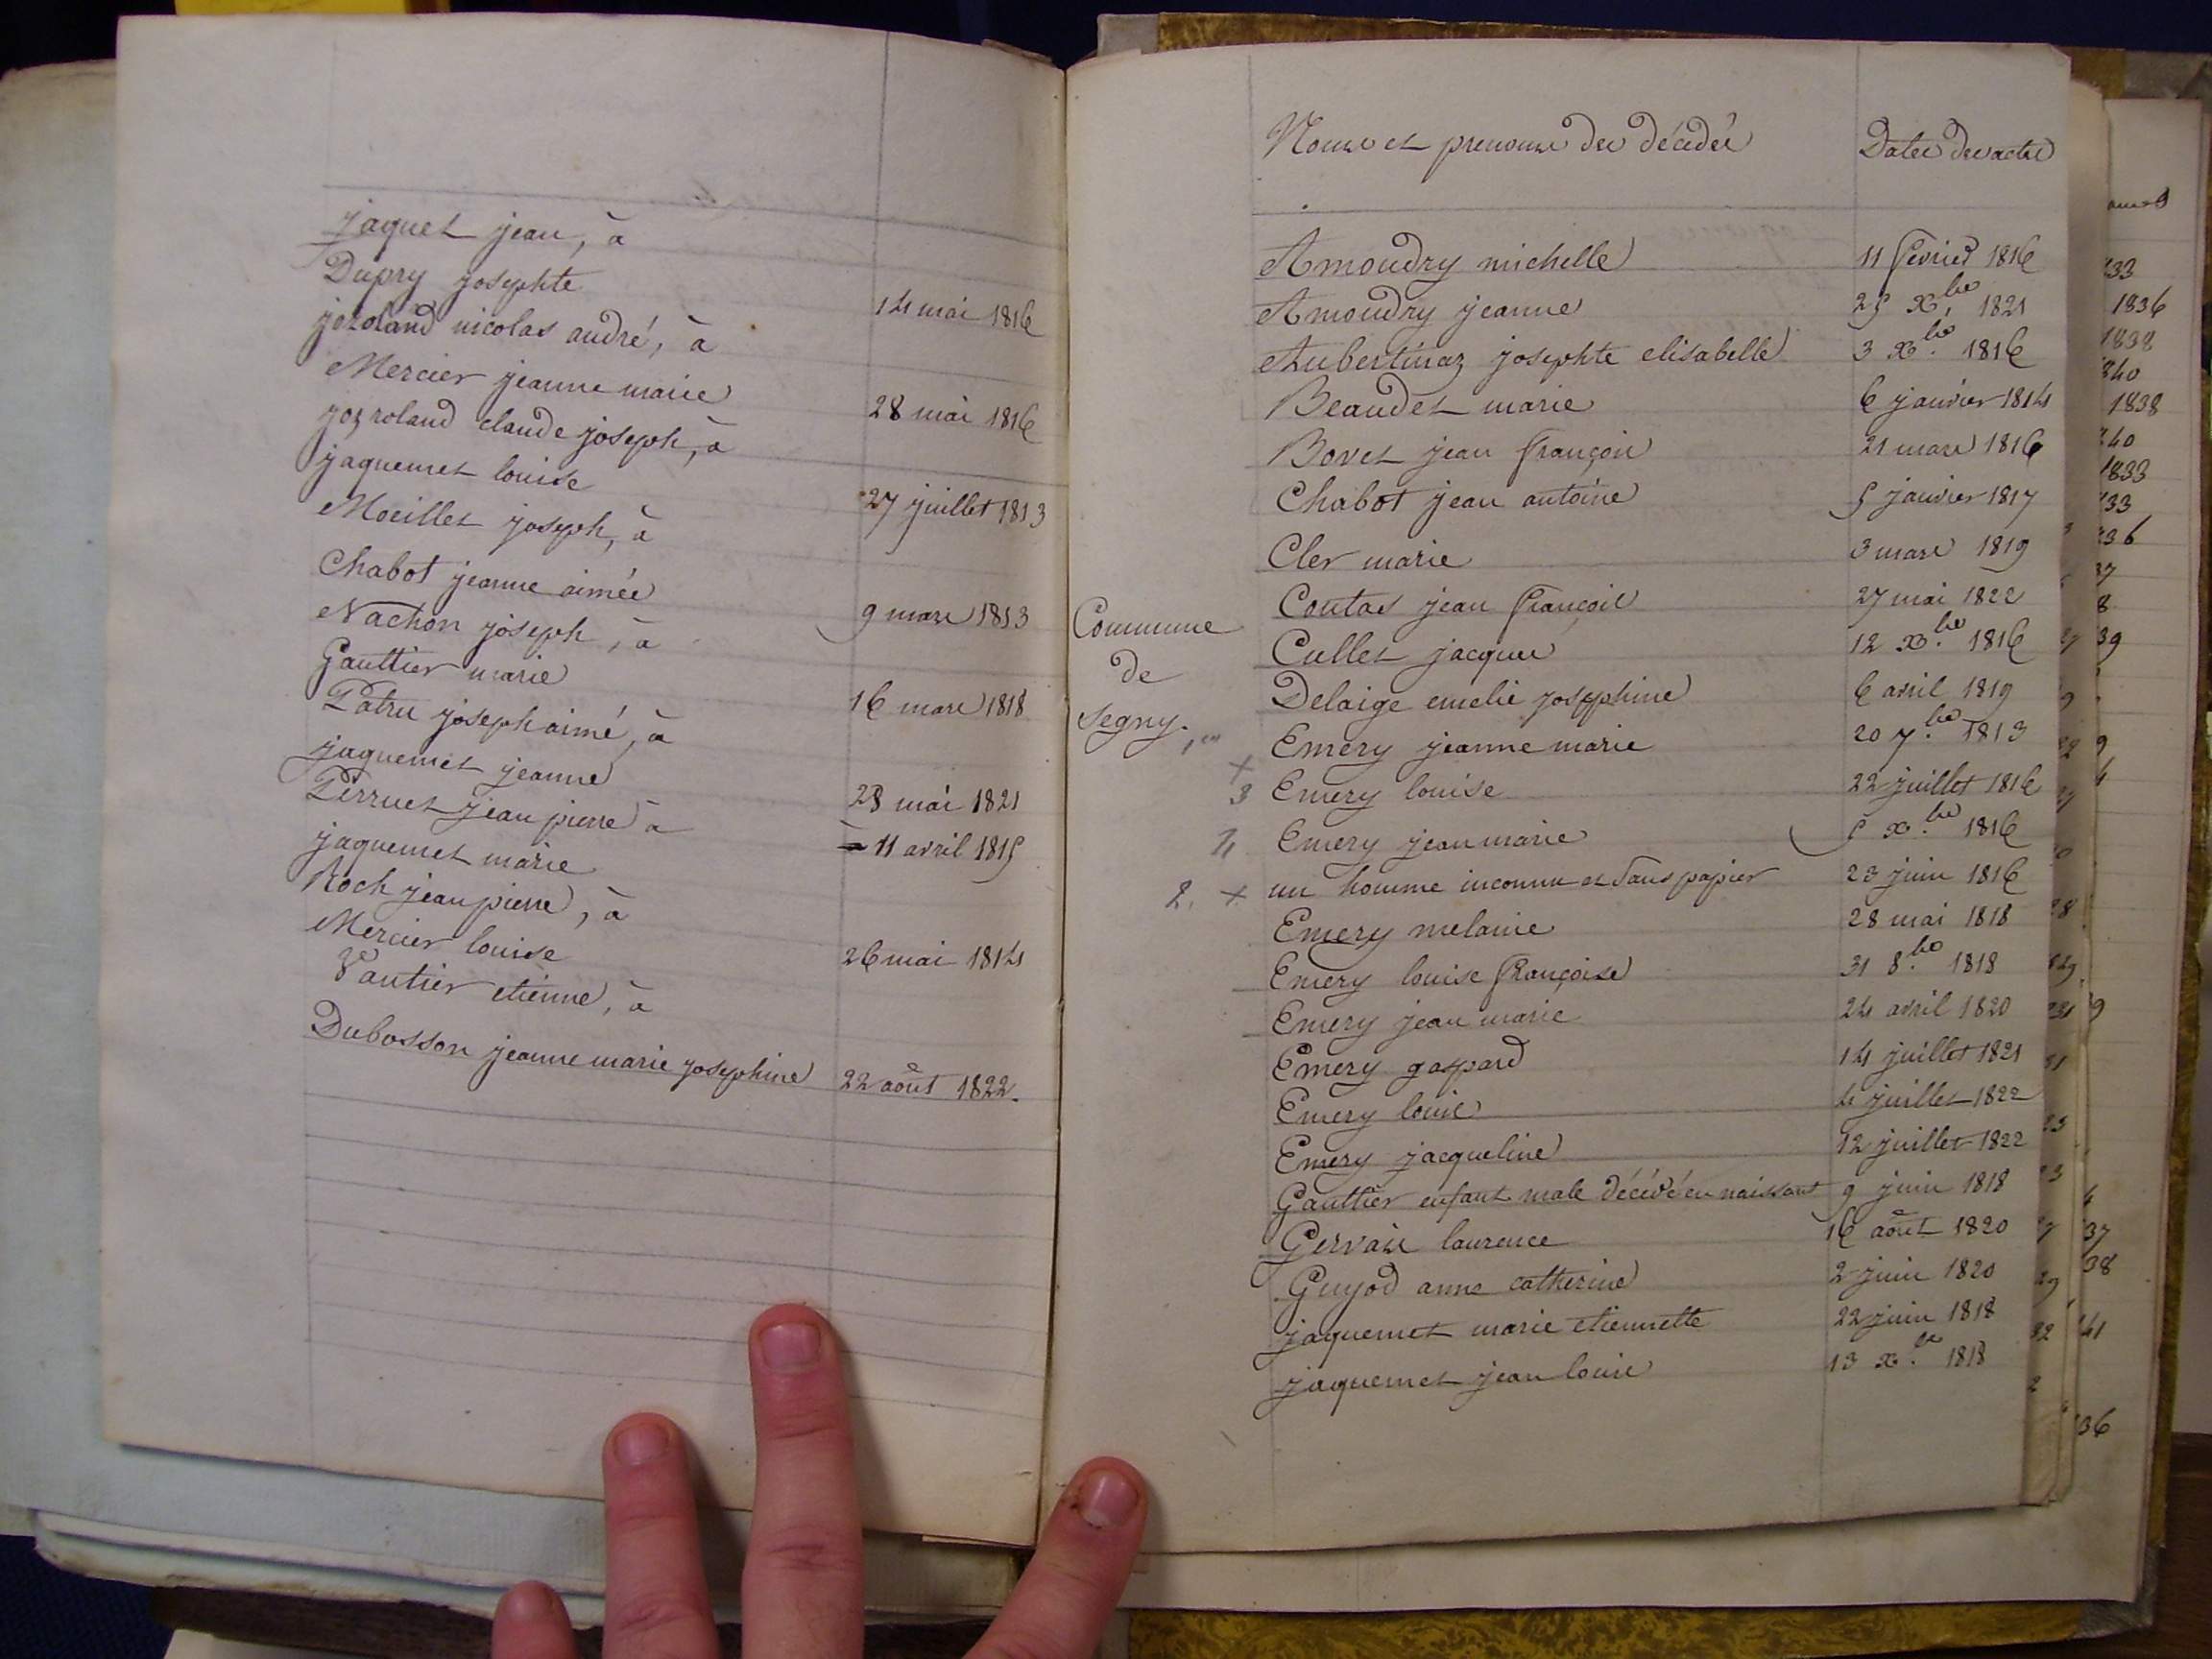 jaquet jean, à
Dupry josephte 14 mai 1816
jozroland nicolas andré, à
Mercier jeanne marie 28 mai 1816
jozroland claude joseph, à
jaquemet louise 27 juillet 1813
Moeillet joseph, à
Chabot jeanne aimée 9 mars 1813
Nachon joseph, à
Gauttier marie 16 mars 1818
Patru joseph aimé, à
jaquemet jeanne 28 mai 1821
Perruet jean pierre à
jaquemet marie 11 avril 1815
Roch jean pierre, à
Mercier louise 26 mai 1814
Vautier etienne, à
Dubosson jeanne marie josephine 22 août 1822.
Noms et prenoms des décédés Dates des actes
Amoudry michelle 11 fevrier 1816
Amoudry jeanne 25 Xbre 1821
Aubertinaz josephte elisabelle 3 Xbre 1816
Beaudet marie 6 janvier 1814
Bovet jean françois 21 mars 1816
Chabot jean antoine 5 janvier 1817
Cler marie 3 mars 1819
Coutas jean françois 27 mai 1822
Commune de Segny.
Cullet jacques 12 Xbre 1816
Delaige emelie josephine 6 avril 1819
Emery jeanne marie 20 7bre 1813
3 Emery louise 22 juillet 1816
4 Emery jean marie 5 Xbre 1816
2. x un homme inconnu et sans papier 23 juin 1816
Emery melanie 28 mai 1818
Emery louise françoise 31 8bre 1818
Emery jean marie 24 avril 1820
Emery gaspard 14 juillet 1821
Emery louis 4 juillet 1822
Emery jacqueline 12 juillet 1822
Gauttier enfant male décédé en naissant 9 juin 1818
Gervais laurence 16 août 1820
Guyod anne catherine 2 juin 1820
jaquemet marie etiennette 22 juin 1818
jaquemet jean louis 13 Xbre 1818
1836
1838
1838
1833